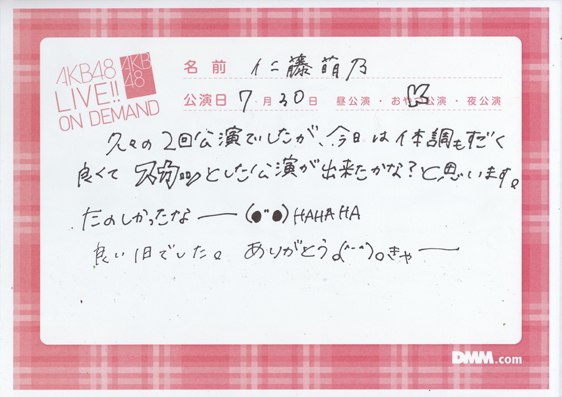 AKB48
LIVE!!
ON DEMAND
AKB
48
名前 仁藤萌乃
公演日 7月30日 昼公演・おやつ公演・夜公演
久々の2回公演でしたが、今日は体調もすごく
良くてスカッとした公演が出来たかな?と思います。
たのしかったなー (●¨●)HAHAHA
良い1日でした。ありがとうo(^-^)oきゃー
DMM.com